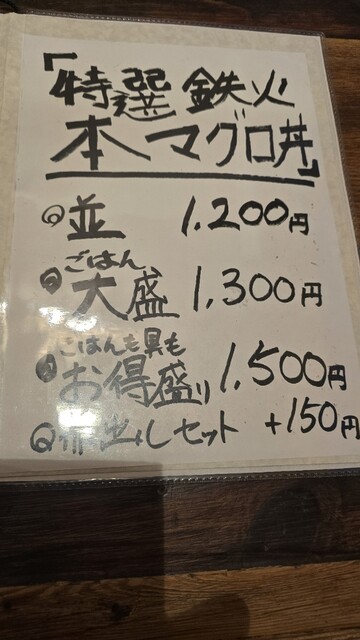 「特選 鉄火
本マグロ丼」
並 1,200円
ごはん
大盛 1,300円
ごはんも具も
お得盛り 1,500円
赤出しセット +150円